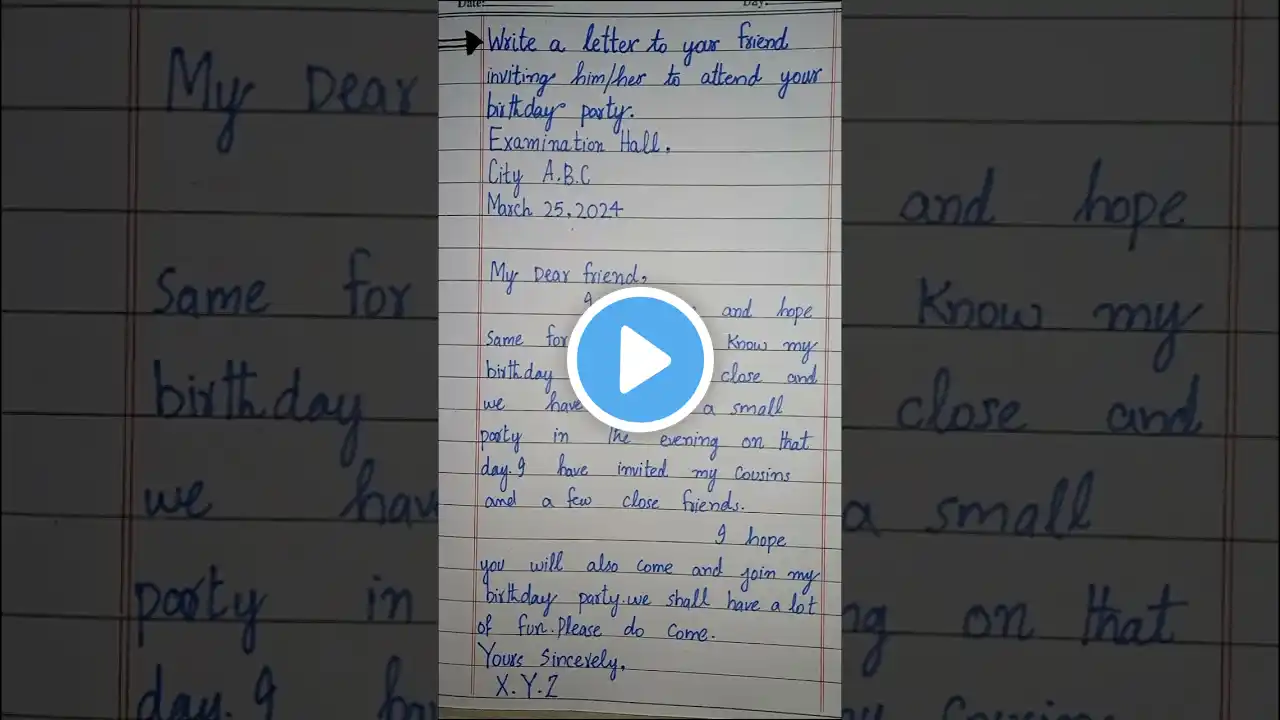 Date: Day:
Write a letter to your friend
inviting him/her to attend your
birthday party.
Examination Hall,
City A.B.C
March 25, 2024
My Dear friend,
and hope
Same for Know my
birthday close and
we have a small
party in the evening on that
day. I have invited my Cousins
and a few close friends.
I hope
you will also come and join my
birthday party. we shall have a lot
of fun. Please do come.
Yours Sincerely,
X.Y.Z